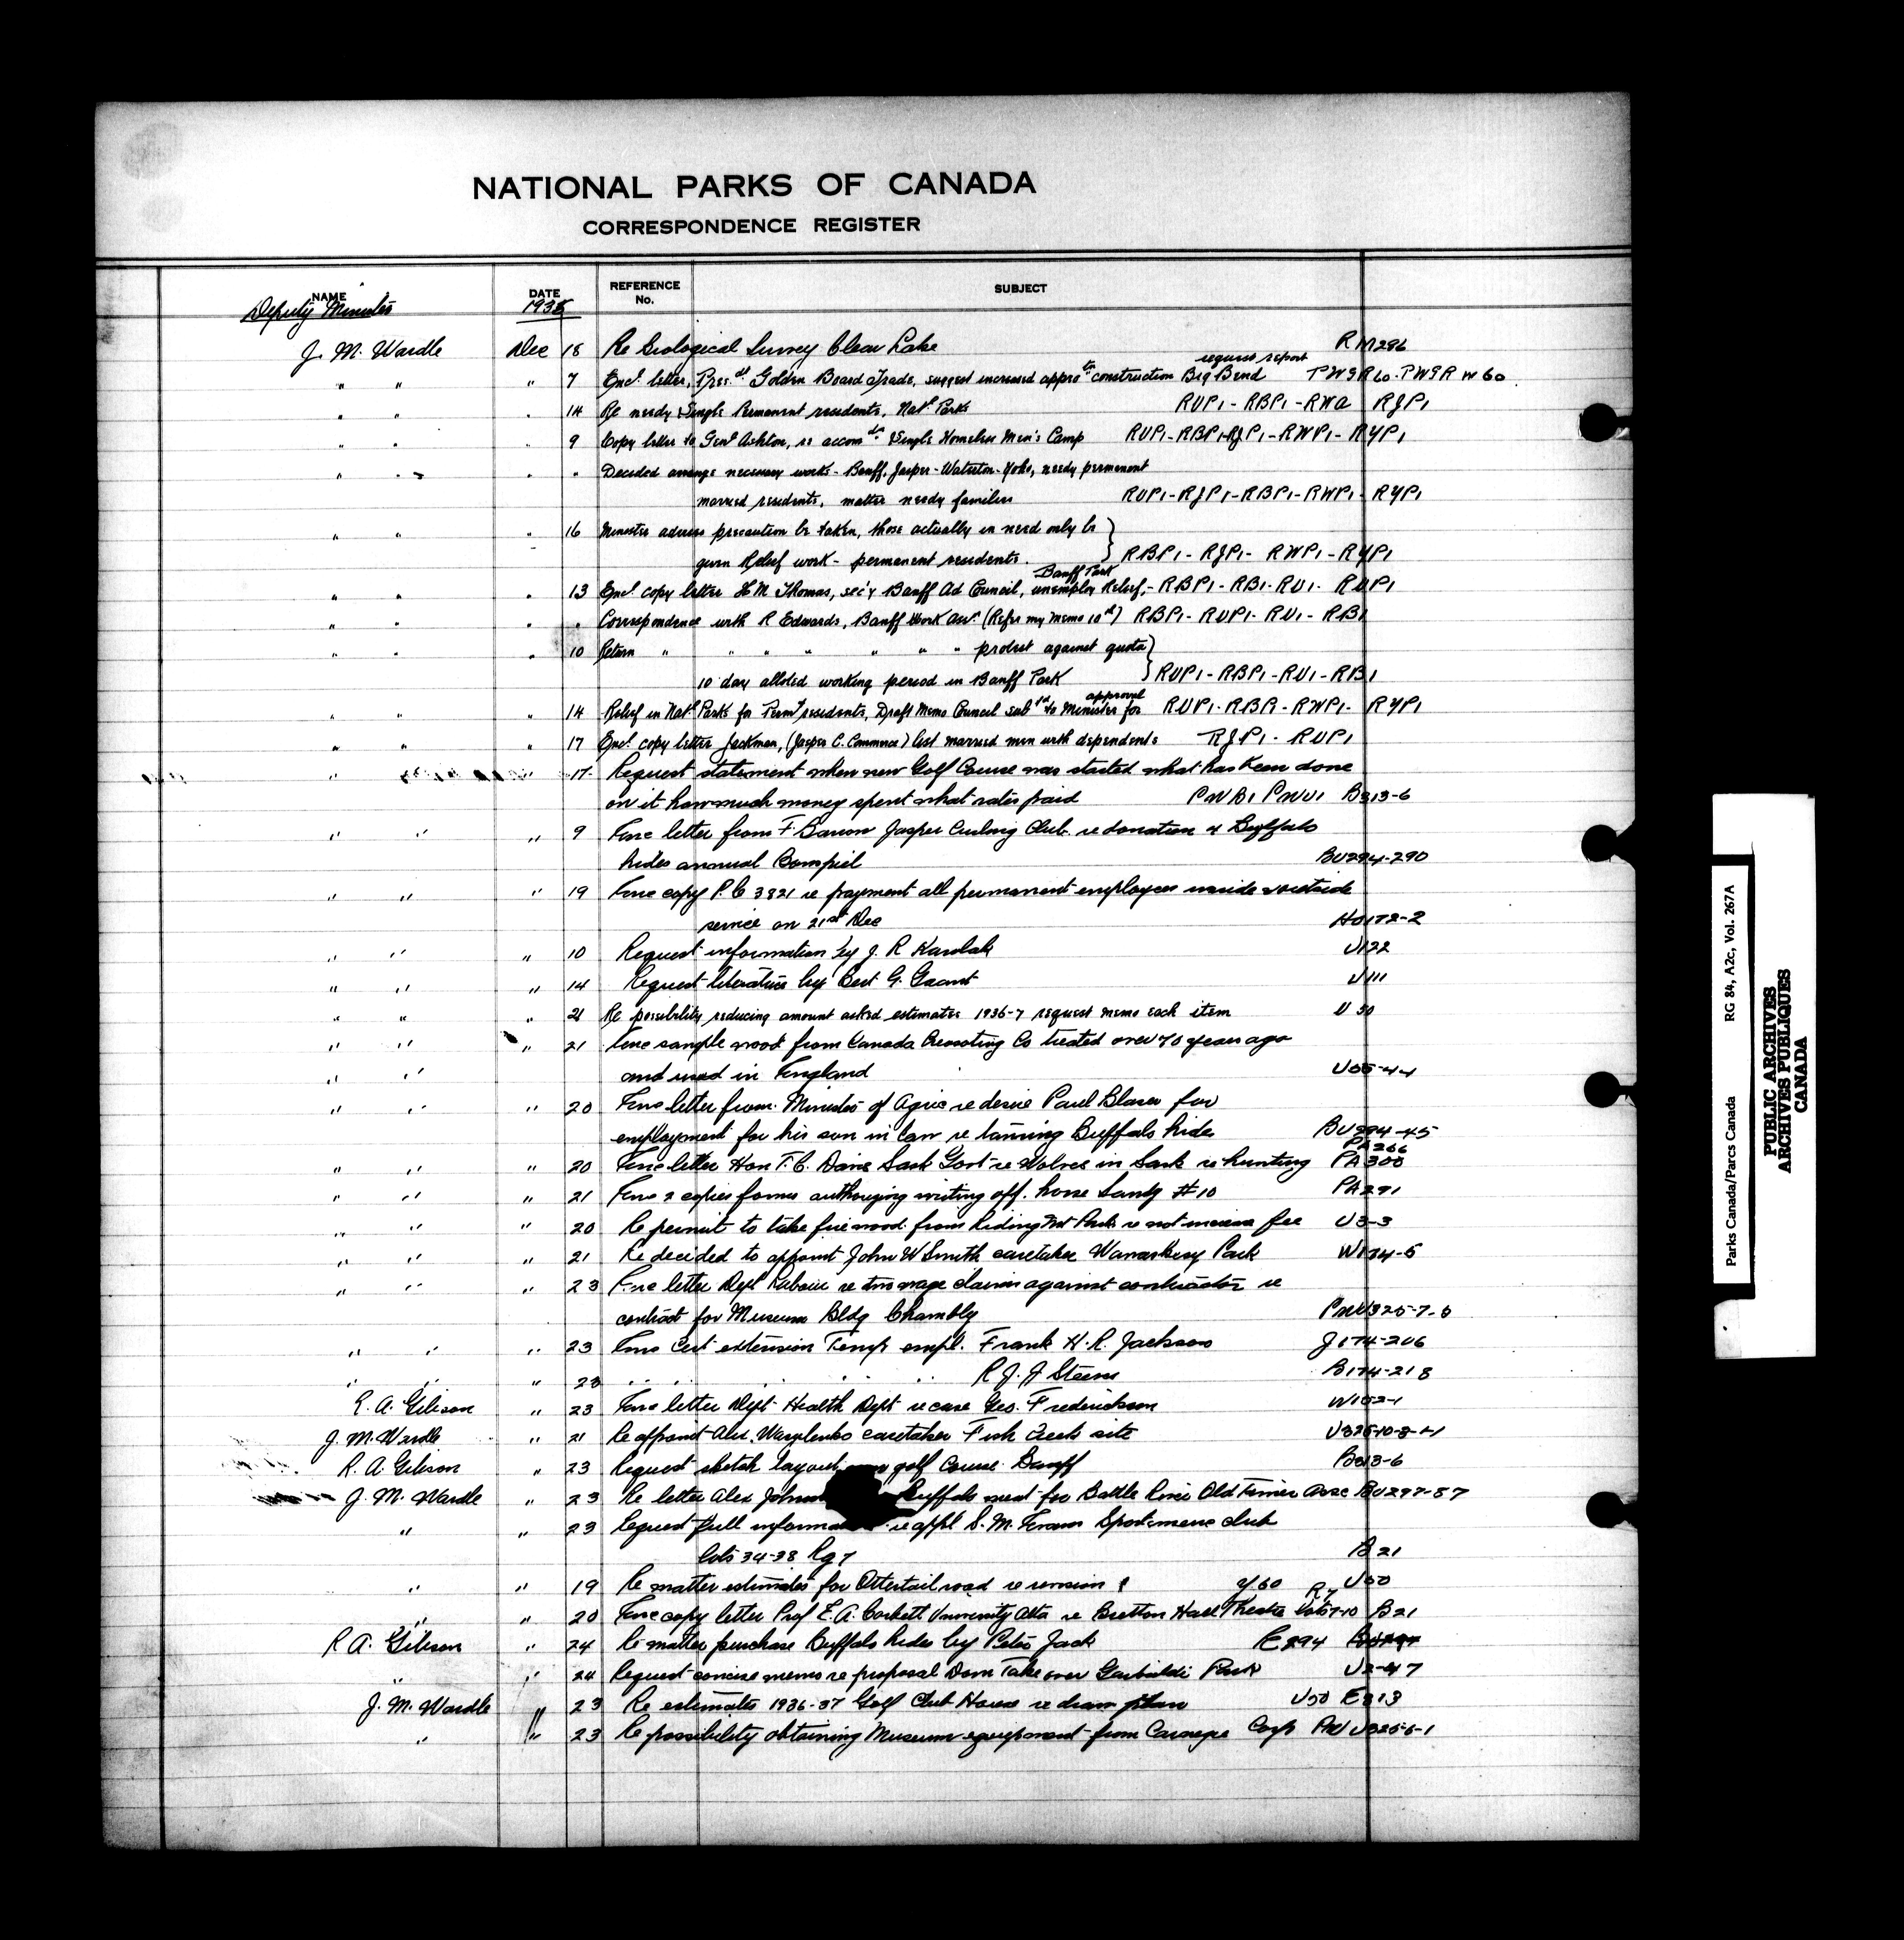 NATIONAL PARKS OF CANADA
CORRESPONDENCE REGISTER
NAME DATE REFERENCE No. SUBJECT
Deputy Minister 1935
J. M. Wardle Dec 18 Re Geological Survey Clear Lake RM296
request report
" " " 7 Encl. letter, Pres. Golden Board Trade, suggest increased appro construction Big Bend
" " " 14 Re needy Single Permanent residents, Natl Parks RUP1 - RBP1 - RWA RJP1
" " " 9 Copy letter to Genl Ashton, re accom Single Homeless Men's Camp RUP1 - RBP1 - RJP1 - RWP1 - RYP1
" " " " Decided arrange necessary works - Banff, Jasper - Waterton - Yoho, needy permanent
married residents, matter needy families RUP1 - RJP1 - RBP1 - RWP1 - RYP1
" " " 16 Minister precaution be taken, those actually in need only be
given Relief work - permanent residents. RBP1 - RJP1 - RWP1 - RYP1
Banff Park
" " " 13 Encl. copy letter H M Thomas, sec'y Banff Ad Council, unemploy Relief, - RBP1 - RB1 - RU1 - RUP1
" " " " Correspondence with R Edwards, Banff Work Assn. (Refer my memo 10th) RBP1 - RUP1 - RU1 - RB1
" " " 10 Return " " " " " " " protest against quota
10 day alloted working period in Banff Park RUP1 - RBP1 - RU1 - RB1
approval
" " " 14 Relief in Natl Parks for Permt residents, Draft Memo Council sub to Minister for RUP1 - RBP1 - RWP1 - RYP1
" " " 17 Encl. copy letter Jackman, (Jasper C. Commerce) list married men with dependents RJP1 - RUP1
" " 17 Request statement when new Golf Course was started what has been done
on it how much money spent what rates paid PWB1 PWU1 B313-6
" " " 9 Enc letter from F. Barron Jasper Curling Club re donation of Buffalo
hides annual Bonspiel BU294-290
" " " 19 Enc copy P.C 3821 re payment all permanent employees inside & outside
service on 21st Dec HO172-2
" " " 10 Request information by J. R U122
" " " 14 Request literature by Bert G. Grant U111
" " " 21 Re possibility reducing amount asked estimates 1936-7 request memo each item U 50
" " " 21 Enc sample wood from Canada Creosoting Co treated over 70 years ago
" " and used in England U55-44
" " " 20 Enc letter from Minister of Agric re desire Paul Blaser for
employment for his son in law re tanning Buffalo hides BU294-45
PA266
" " " 20 Enc letter Hon T. C. Davis Sask Govt re Wolves in Sask re hunting PA300
" " " 21 Enc 2 copies forms authorizing writing off. horse Sandy #10 PA291
" " " 20 Re permit to take firewood from Riding Mt Park re not increase fee U3-3
" " " 21 Re decided to appoint John W Smith caretaker Wawaskesy Park W174-5
" " " 23 Enc letter Dept Labour re two wage claims against contractor re
contract for Museum Bldg Chambly
" " " 23 Enc Cert extension Temp empl. Frank H. R. Jackson J174-206
" " " 23 " " " " " R J. J B174-218
R. A. Gibson " 23 Enc letter Dept Health Dept re care Geo. Frederickson W152-1
J. M. Wardle " 21 Re appoint Alex. caretaker Fish Creek site
R. A. Gibson " 23 Request sketch layout golf course Banff B313-6
J. M. Wardle " 23 Re letter Alex Buffalo meat for Battle River Old Timers Assc BU297-87
" " 23 Request full re appl S. M. Sportsmens club
lots 34-38 Rg 7 B 21
" " 19 Re matter estimates for Ottertail road re revision Y60 U50
" " 20 Enc copy letter Prof E. A. Corbett University Alta re Bretton Hall Theatre lots 7-10 B21
R A. Gibson " 24 Re matter purchase Buffalo hides by Peter Jack E294
" " 24 Request concise memo re proposal Dom Take over Garibaldi Park U2-47
J. M. Wardle " 23 Re estimates 1936-37 Golf Club House re plan U50 E313
" " 23 Re possibility obtaining Museum equipment from Carnegie Corp PW U325-6-1
Parks Canada/Parcs Canada RG 84, A2c, Vol. 267A
PUBLIC ARCHIVES
ARCHIVES PUBLIQUES
CANADA